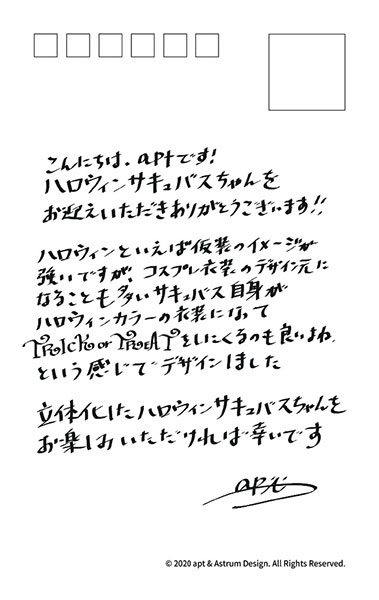 こんにちは、aptです!
ハロウィンサキュバスちゃんを
お迎えいただきありがとうございます!!
ハロウィンといえば仮装のイメージが
強いですが、コスプレ衣装のデザイン元に
なることも多いサキュバス自身が
ハロウィンカラーの衣装になって
TRICK or TREATをしにくるのも良いよね、
という感じでデザインしました
立体化したハロウィンサキュバスちゃんを
お楽しみいただければ幸いです
apt
© 2020 apt & Astrum Design. All Rights Reserved.